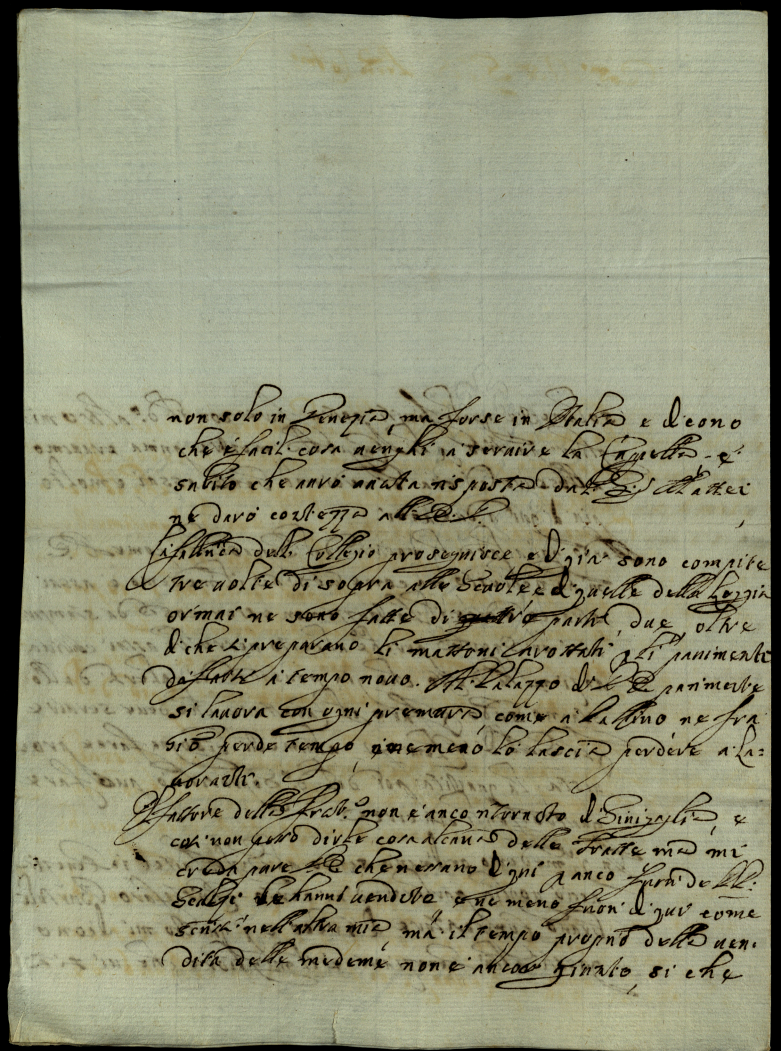 non solo in Venezia, ma forse in Italia e dicono
che è facil cosa venghi a servire la Cappella, e
subito che avrò avuta risposta dal Sig.r Mattei
ne darò certezza all'
La fabrica del Collegio proseguisce e già sono compite
tre volte di sopra alle Scuole e di quelle della Loggia
ormai ne sono fatte di parti due, oltre
di che si preparano li mattoni arrotati p li pavimenti
da farsi a tempo novo. Al Palazzo di parimente
si lavora con ogni premura, come a ne fra
perde tempo, ne meno lo lascia perdere a la=
voranti.
Il fattore della non è anco ritornato di Sinigaglia, e
così non però dirle cosa alcuna delle Tratte ma mi
creda pure che nessano di qui p anco fuori de
hanno vendute e ne meno fuori di qui come
scrissi nell'altra mia, ma il tempo proprio della ven=
dita delle medeme non è ancor, si che